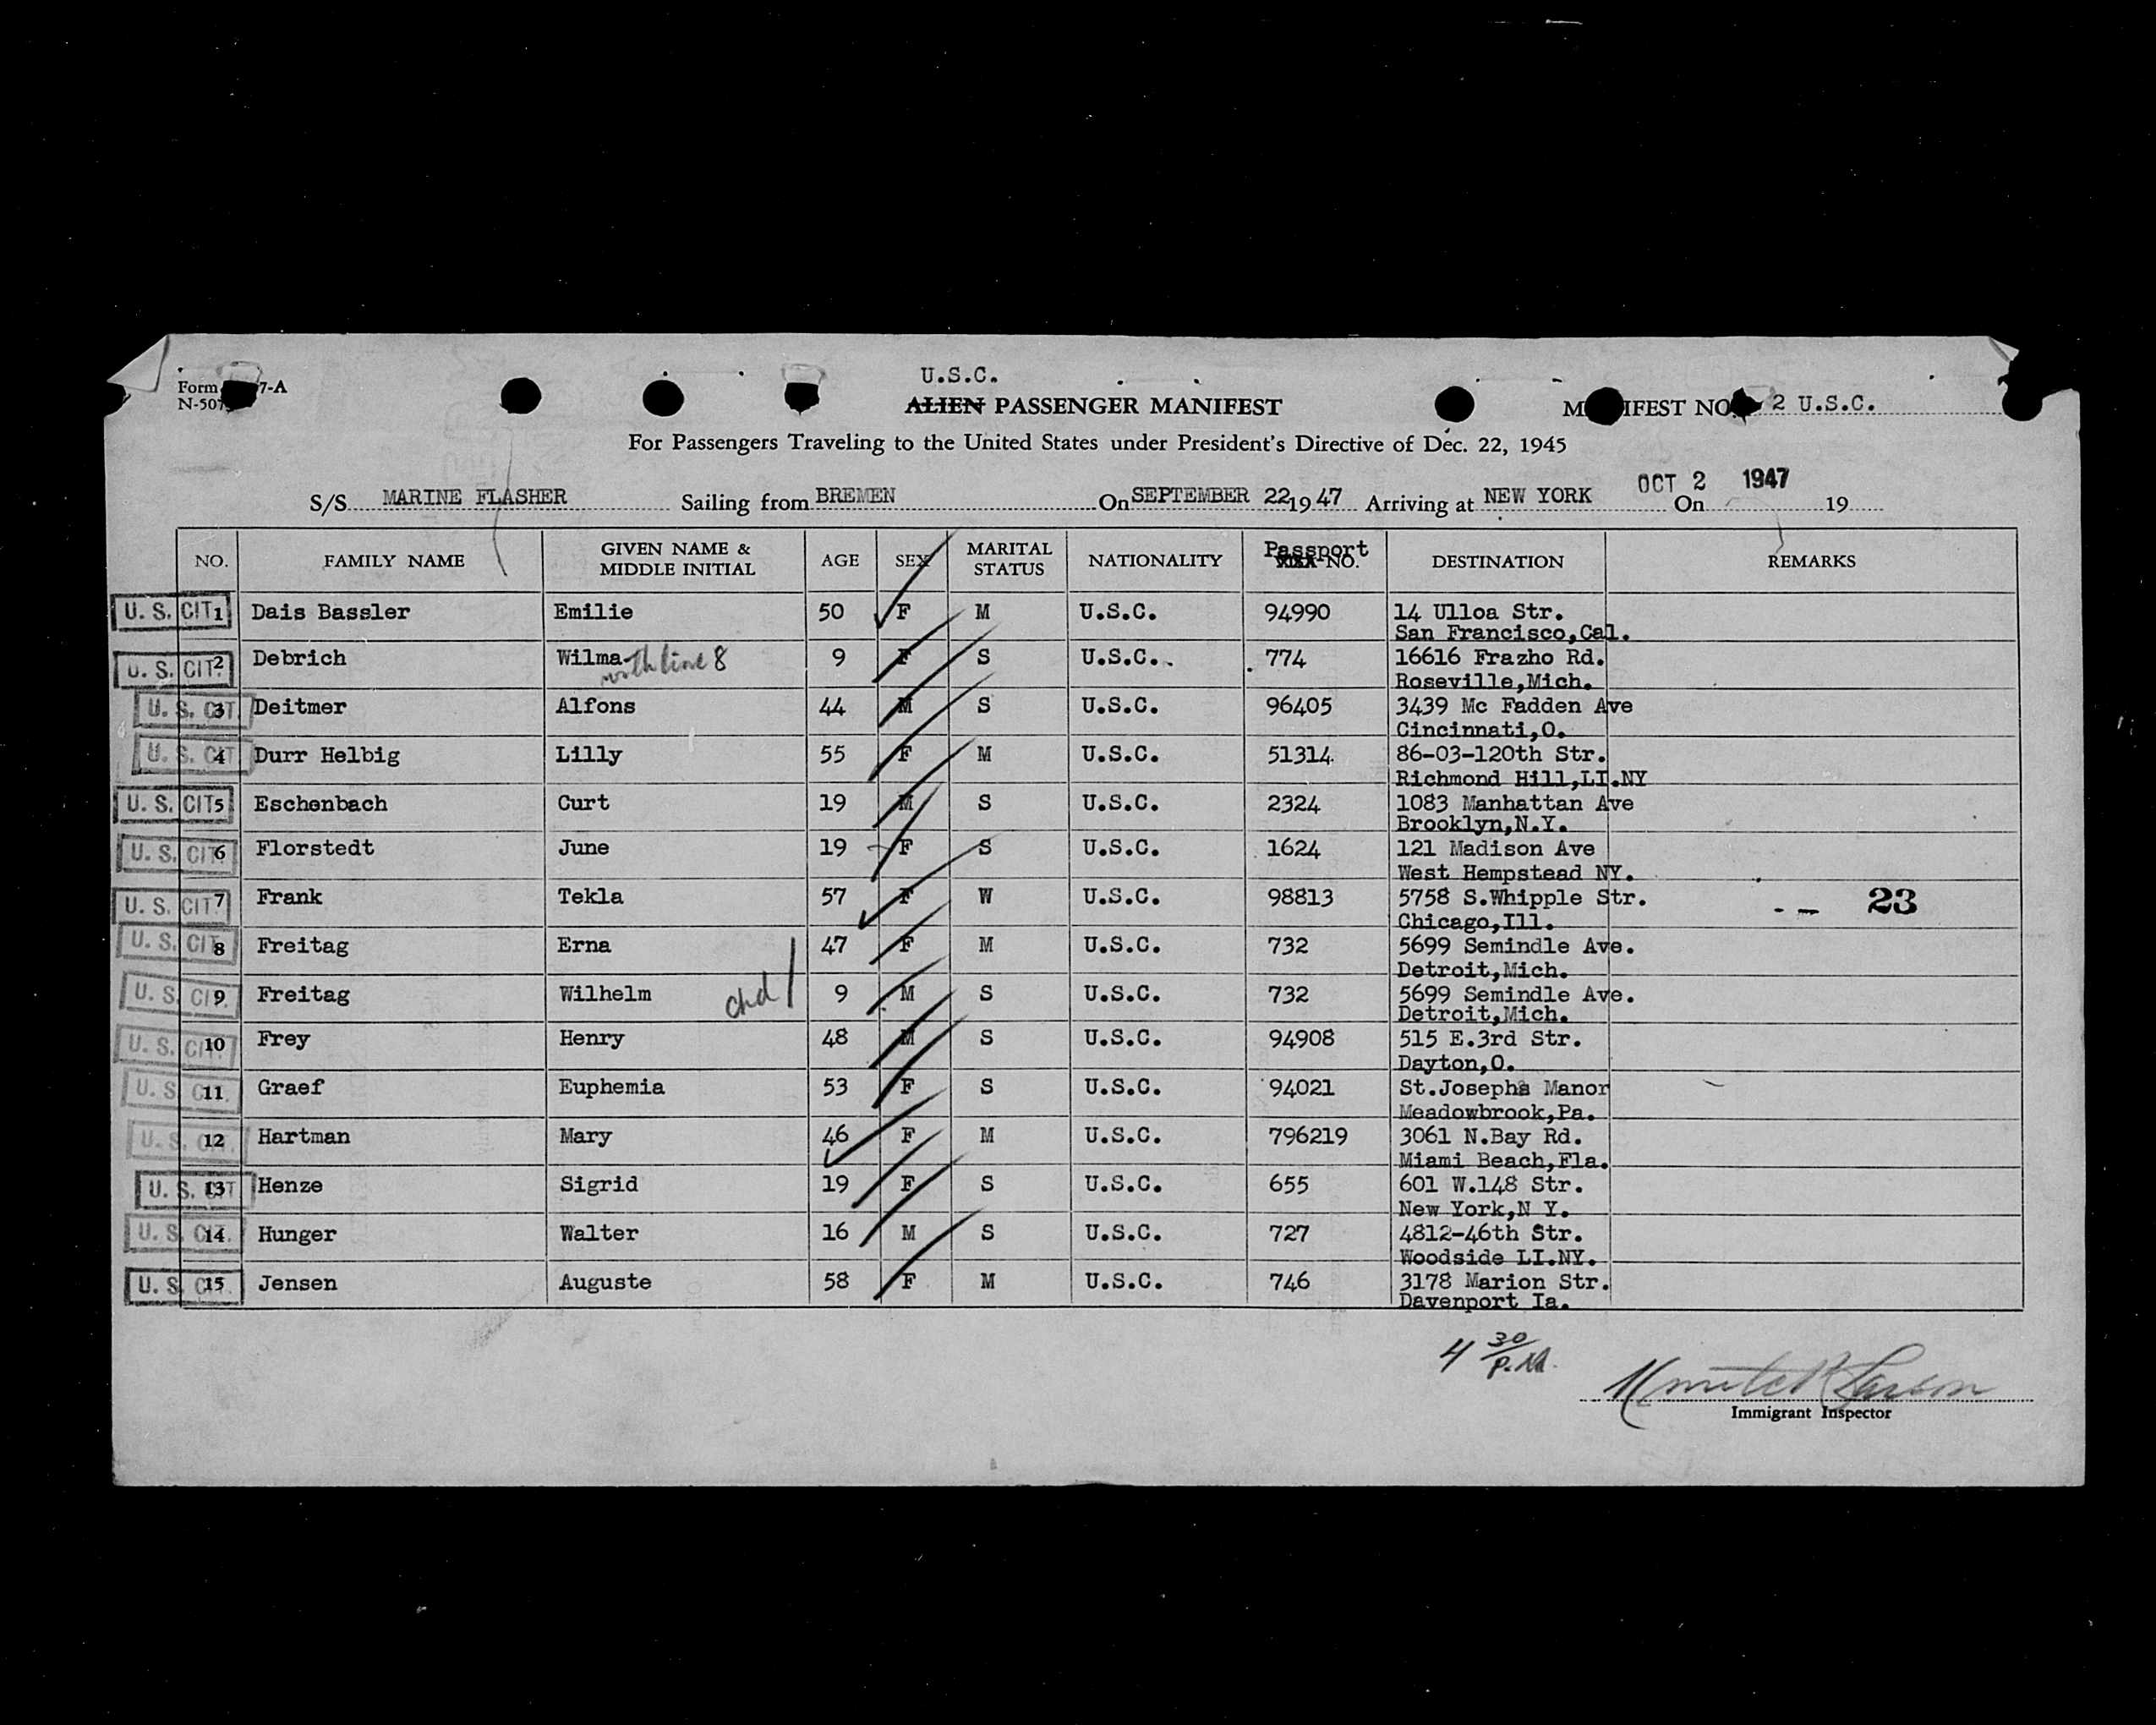 U.S.C.
Form 7-A
N-507
ALIEN PASSENGER MANIFEST
MANIFEST NO. 2 U.S.C.
For Passengers Traveling to the United States under President's Directive of Dec. 22, 1945
S/S MARINE FLASHER Sailing from BREMEN On SEPTEMBER 22 19 47 Arriving at NEW YORK On OCT 2 1947 19
NO. FAMILY NAME GIVEN NAME & MIDDLE INITIAL AGE SEX MARITAL STATUS NATIONALITY Passport VISA NO. DESTINATION REMARKS
U. S. CIT. 1 Dais Bassler Emilie 50 F M U.S.C. 94990 14 Ulloa Str.
San Francisco,Cal.
U. S. CIT. 2 Debrich Wilma with line 8 9 F S U.S.C. 774 16616 Frazho Rd.
Roseville,Mich.
U. S. CIT. 3 Deitmer Alfons 44 M S U.S.C. 96405 3439 Mc Fadden Ave
Cincinnati,O.
U. S. CIT. 4 Durr Helbig Lilly 55 F M U.S.C. 51314 86-03-120th Str.
Richmond Hill,LI.NY
U. S. CIT. 5 Eschenbach Curt 19 M S U.S.C. 2324 1083 Manhattan Ave
Brooklyn,N.Y.
U. S. CIT. 6 Florstedt June 19 F S U.S.C. 1624 121 Madison Ave
West Hempstead NY.
U. S. CIT. 7 Frank Tekla 57 F W U.S.C. 98813 5758 S.Whipple Str. 23
Chicago,Ill.
U. S. CIT. 8 Freitag Erna 47 F M U.S.C. 732 5699 Semindle Ave.
Detroit,Mich.
U. S. CIT. 9 Freitag Wilhelm chd 9 M S U.S.C. 732 5699 Semindle Ave.
Detroit,Mich.
U. S. CIT. 10 Frey Henry 48 M S U.S.C. 94908 515 E.3rd Str.
Dayton,O.
U. S. CIT. 11 Graef Euphemia 53 F S U.S.C. 94021 St.Josephs Manor
Meadowbrook,Pa.
U. S. CIT. 12 Hartman Mary 46 F M U.S.C. 796219 3061 N.Bay Rd.
Miami Beach,Fla.
U. S. CIT 13 Henze Sigrid 19 F S U.S.C. 655 601 W.148 Str.
New York,N Y.
U. S. CIT. 14 Hunger Walter 16 M S U.S.C. 727 4812-46th Str.
Woodside LI.NY.
U. S. CIT. 15 Jensen Auguste 58 F M U.S.C. 746 3178 Marion Str.
Davenport Ia.
4 30 P.M.
Immigrant Inspector